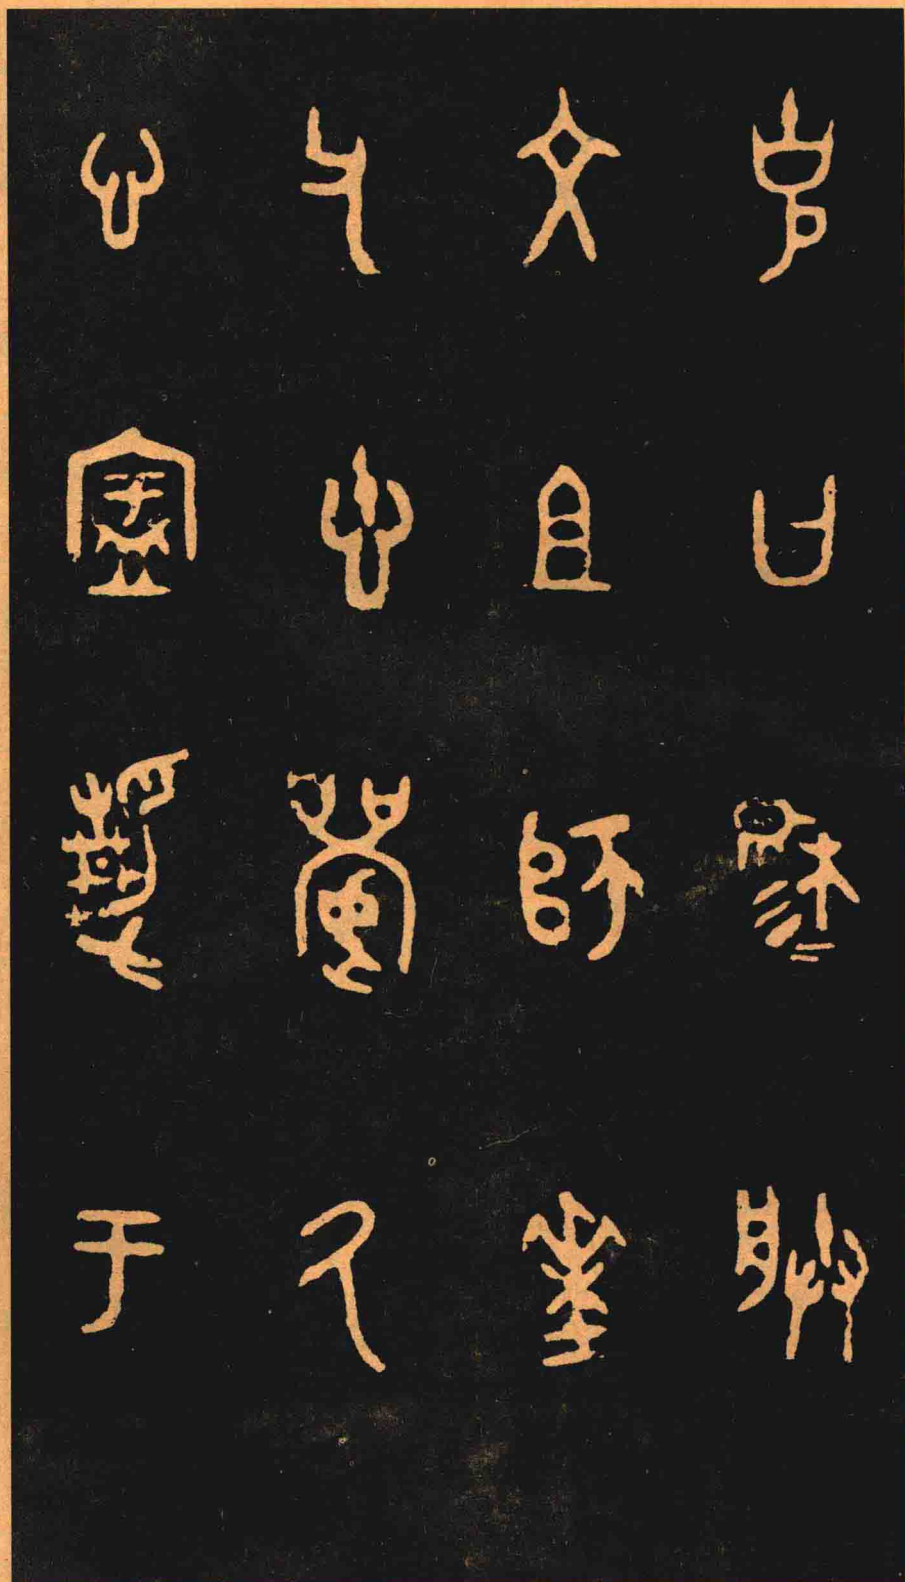 克曰穆=朕
文且師華
父悤襄氒
心寍静于